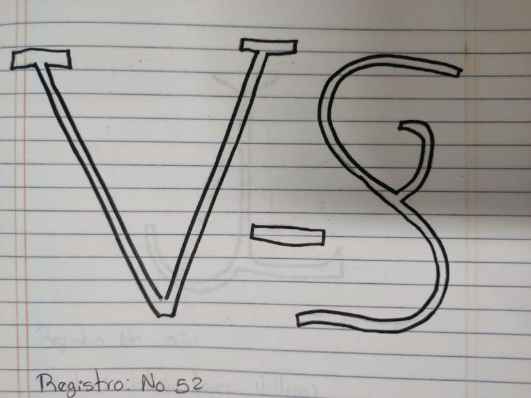 V-S
Registro: No 52